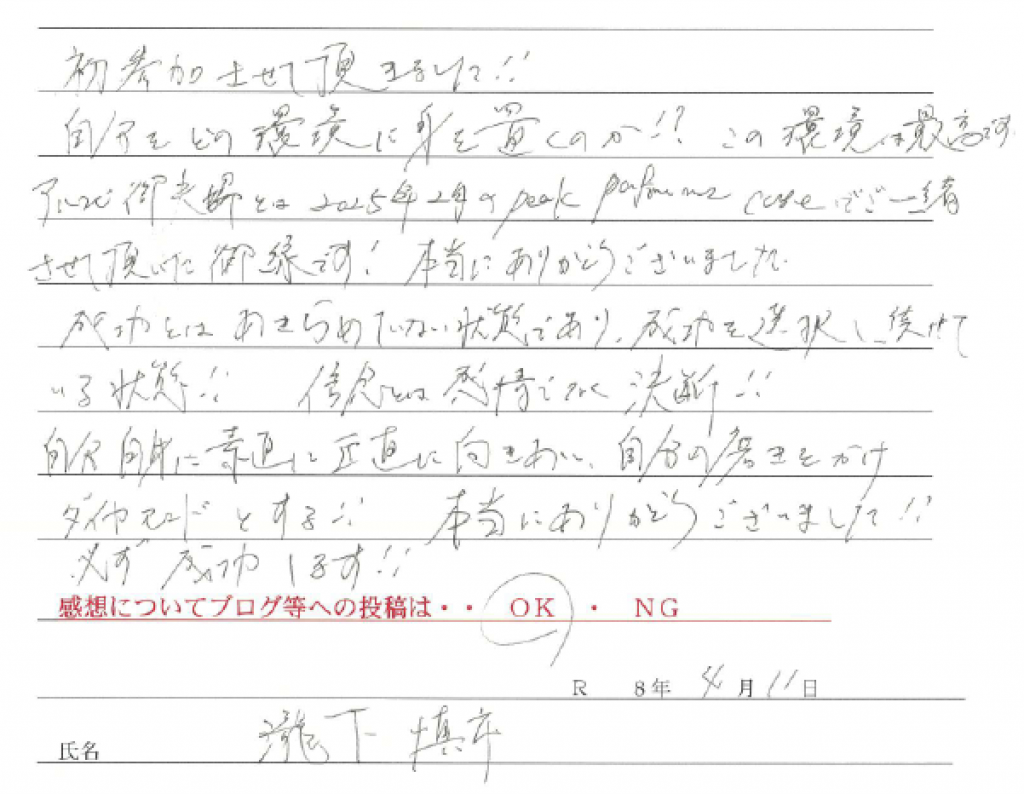 初参加させて頂きました!!
自分をどの環境に身を置くのか!? この環境は最高です
御夫婦とは2025年2月のpeak performance courseでご一緒
させて頂いた御縁です! 本当にありがとうございました。
成功とはあきらめていない状態であり、成功を選択し続けて
いる状態!! 信念とは感情でなく決断!!
自分自身に素直に正直に向きあい、自分の磨きをかけ
ダイヤモンドとする!! 本当にありがとうございました!!
必ず成功します!!
感想についてブログ等への投稿は・・ OK ・ NG
R 8年 4月 11日
氏名 瀧下 慎